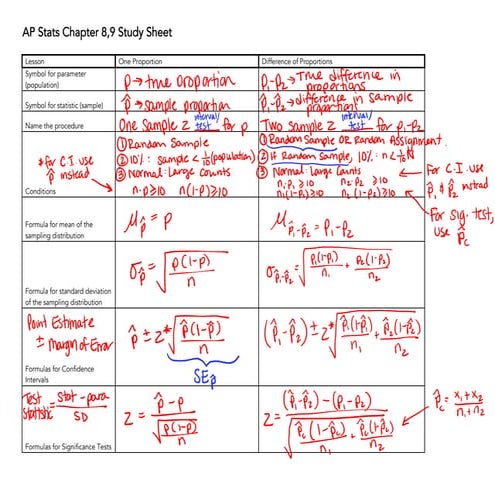 AP Stats Chapter 8,9 Study Sheet
Lesson
One Proportion
Difference of Proportions
Symbol for parameter
(population)
p → true proportion
p₁-p₂ → True difference in
proportions
Symbol for statistic (sample)
p̂ → sample proportion
p̂₁-p̂₂ → difference in sample
proportions
Name the procedure
One Sample Z interval/test for p
Two sample Z interval/test for p₁-p₂
*for C.I. use
p̂ instead
Conditions
① Random Sample
② 10%: sample < 1/10 (population)
③ Normal: Large Counts
n·p ≥ 10 n(1-p) ≥ 10
① Random Sample OR Random Assignment
② If Random Sample, 10%: n < 1/10 N
③ Normal: Large Counts
n₁·p₁ ≥ 10 n₂·p₂ ≥ 10
n₁(1-p₁) ≥ 10 n₂(1-p₂) ≥ 10
For C.I. use
p̂₁ & p̂₂ instead
For sig. test,
use p̂c
Formula for mean of the
sampling distribution
μp̂ = p
μp̂₁-p̂₂ = p₁-p₂
Formula for standard deviation
of the sampling distribution
σp̂ = √(p(1-p)/n)
σp̂₁-p̂₂ = √(p₁(1-p₁)/n₁ + p₂(1-p₂)/n₂)
Point Estimate
± Margin of Error
Formulas for Confidence
Intervals
p̂ ± z* √(p̂(1-p̂)/n)
SEp̂
(p̂₁-p̂₂) ± z* √(p̂₁(1-p̂₁)/n₁ + p̂₂(1-p̂₂)/n₂)
Test Statistic = stat - para / SD
Formulas for Significance Tests
z = (p̂ - p) / √(p(1-p)/n)
z = ((p̂₁-p̂₂) - (p₁-p₂)) / √(p̂c(1-p̂c)/n₁ + p̂c(1-p̂c)/n₂)
p̂c = (x₁+x₂)/(n₁+n₂)